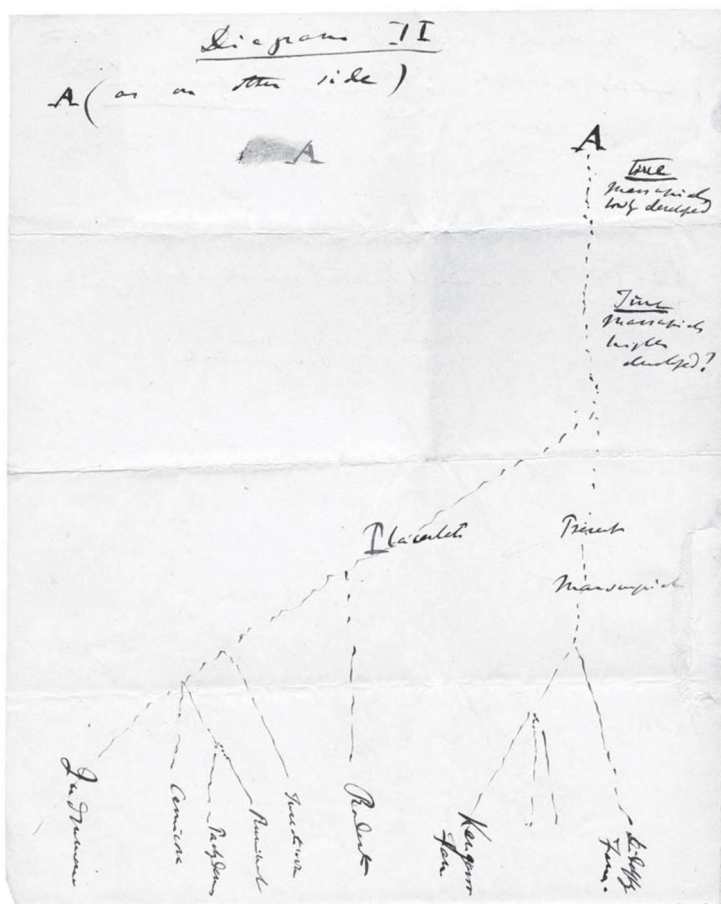 Diagram II
A (as on other side)
A
A
True
marsupials
lowly developed
True
marsupials
highly
developed?
Placentals
Present
Marsupials
Rodents
Insectivora
Ruminants
Pachyderms
Kangaroo
Fam
Didelphys
Fam.